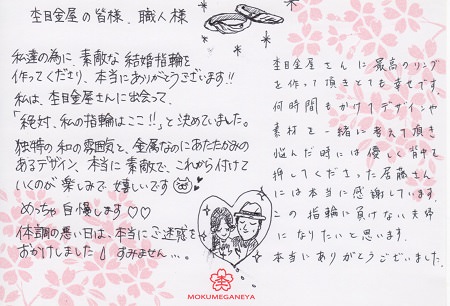 杢目金屋の皆様、職人様
私達の為に、素敵な結婚指輪を
作ってくださり、本当にありがとうございます!!
私は、杢目金屋さんに出会って、
「絶対、私の指輪はここ!!」と決めていました。
独特の和の雰囲気と、金属なのにあたたかみの
あるデザイン、本当に素敵で、これから付けて
いくのが楽しみで嬉しいです
めっちゃ自慢します♡♡
体調の悪い日は、本当にご迷惑を
おかけしました すみません…。
杢目金屋さんに最高のリング
を作って頂きとても幸せです。
何時間もかけてデザインや
素材を一緒に考えて頂き
悩んだ時には優しく背中を
押してくださった斉藤さん
には本当に感謝しています。
この指輪に負けない夫婦
になりたいと思います。
本当にありがとうございました。
MOKUMEGANEYA